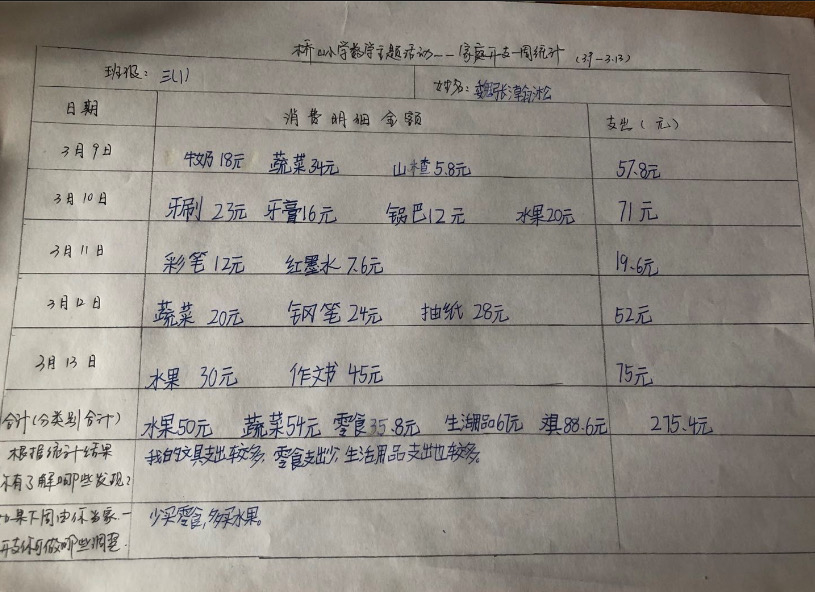 桥山小学数学主题活动——家庭开支一周统计 (3.9—3.13)
班级：三(1) 姓名：魏张瀚淞
日期 消费明细金额 支出（元）
3月9日 牛奶18元 蔬菜34元 山楂5.8元 57.8元
3月10日 牙刷 23元 牙膏16元 锅巴12元 水果20元 71元
3月11日 彩笔12元 红墨水 7.6元 19.6元
3月12日 蔬菜 20元 钢笔 24元 抽纸 28元 52元
3月13日 水果 30元 作文书 45元 75元
合计(分类别合计) 水果50元 蔬菜54元 零食35.8元 生活用品67元 88.6元 275.4元
根据统计结果
你有了解哪些发现？
我的文具支出较多，零食支出少，生活用品支出也较多。
如果下周由你当家，
开支你可做哪些调整．
少买零食，多买水果。